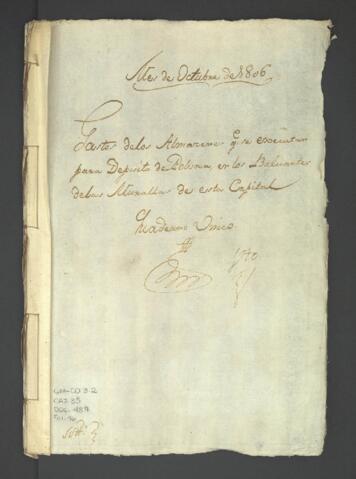 Mes de Octubre de 1806
Gastos de los Almacenes q.e se executan
para Deposito de Polvora, en los Baluartes
de las Murallas de esta Capital
Quaderno Unico
GM-CO 3-2
CAJ 35
DOC. 487